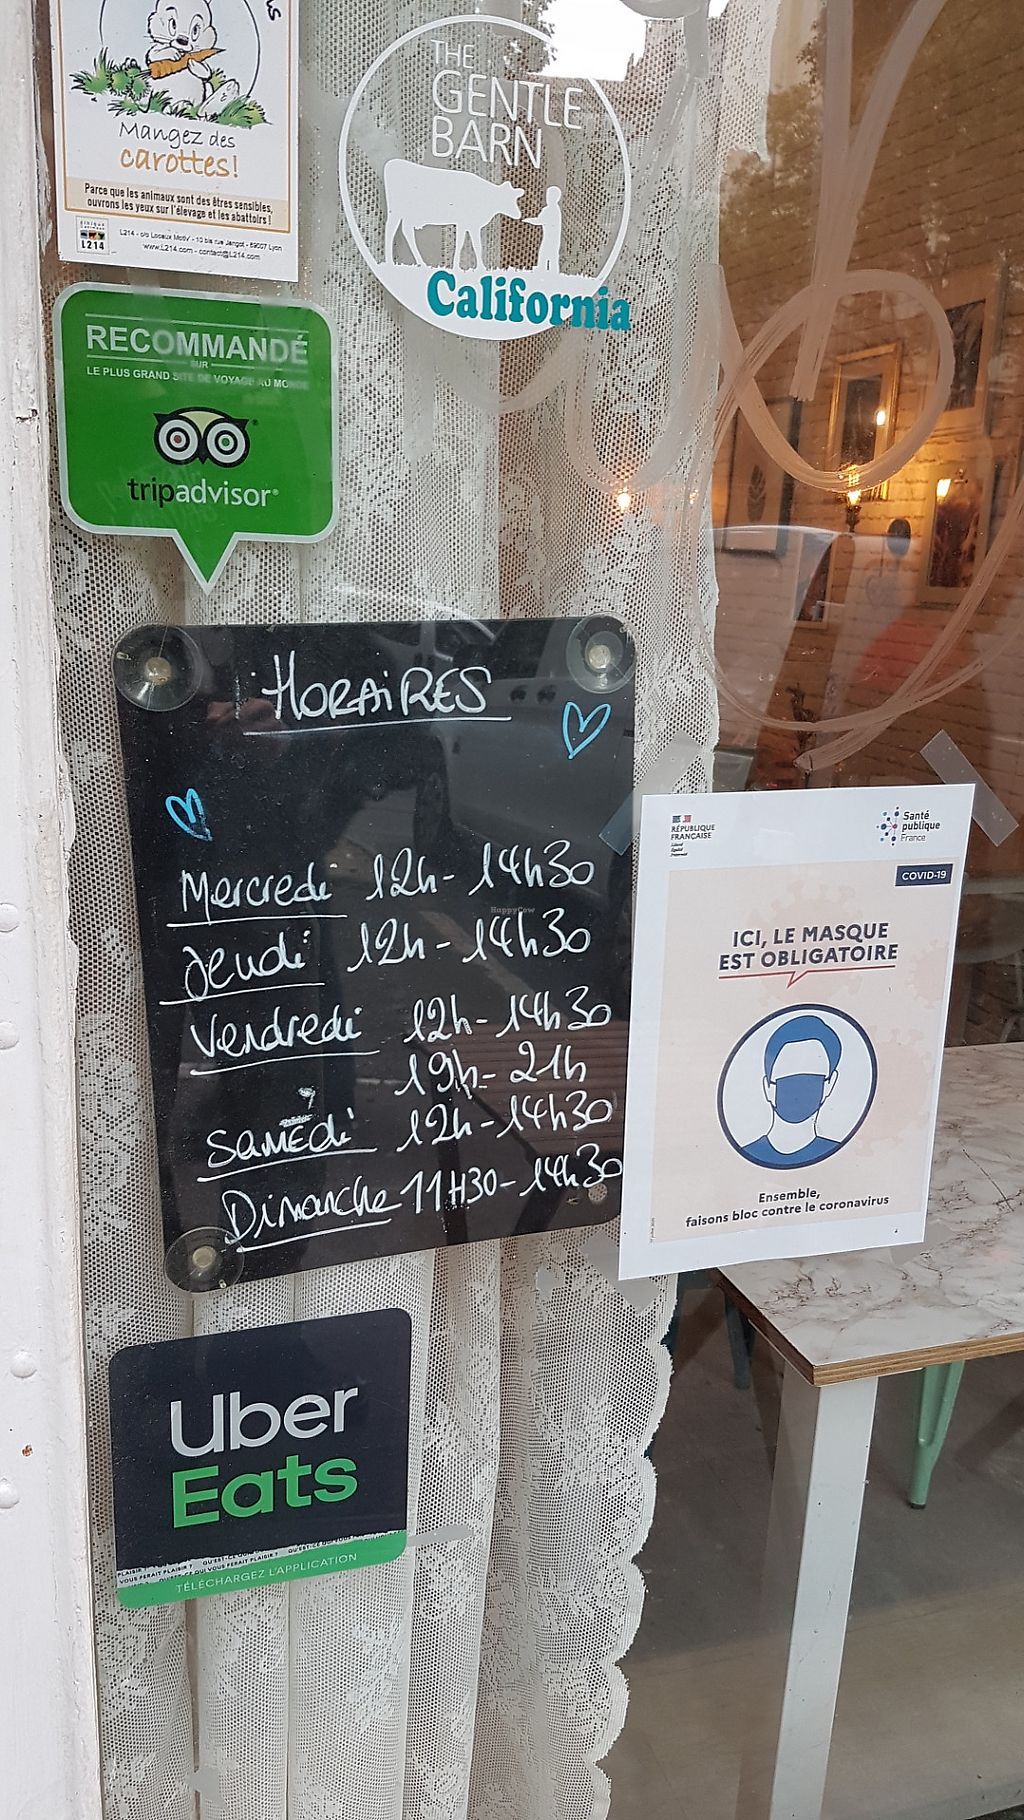 Mangez des
carottes!
Parce que les animaux sont des êtres sensibles,
ouvrons les yeux sur l'élevage et les abattoirs !
L214
L214 - c/o Locaux Motiv' - 10 bis rue Jangot - 69007 Lyon
www.L214.com - contact@L214.com
THE
GENTLE
BARN
California
RECOMMANDÉ
SUR
LE PLUS GRAND SITE DE VOYAGE AU MONDE
tripadvisor®
HORAIRES
Mercredi 12h - 14h30
Jeudi 12h - 14h30
Vendredi 12h - 14h30
19h - 21h
Samedi 12h - 14h30
Dimanche 11H30 - 14h30
HappyCow
RÉPUBLIQUE
FRANÇAISE
Liberté
Égalité
Fraternité
Santé
publique
France
COVID-19
ICI, LE MASQUE
EST OBLIGATOIRE
Ensemble,
faisons bloc contre le coronavirus
Uber
Eats
VOUS FERAIT PLAISIR ?
TÉLÉCHARGEZ L'APPLICATION